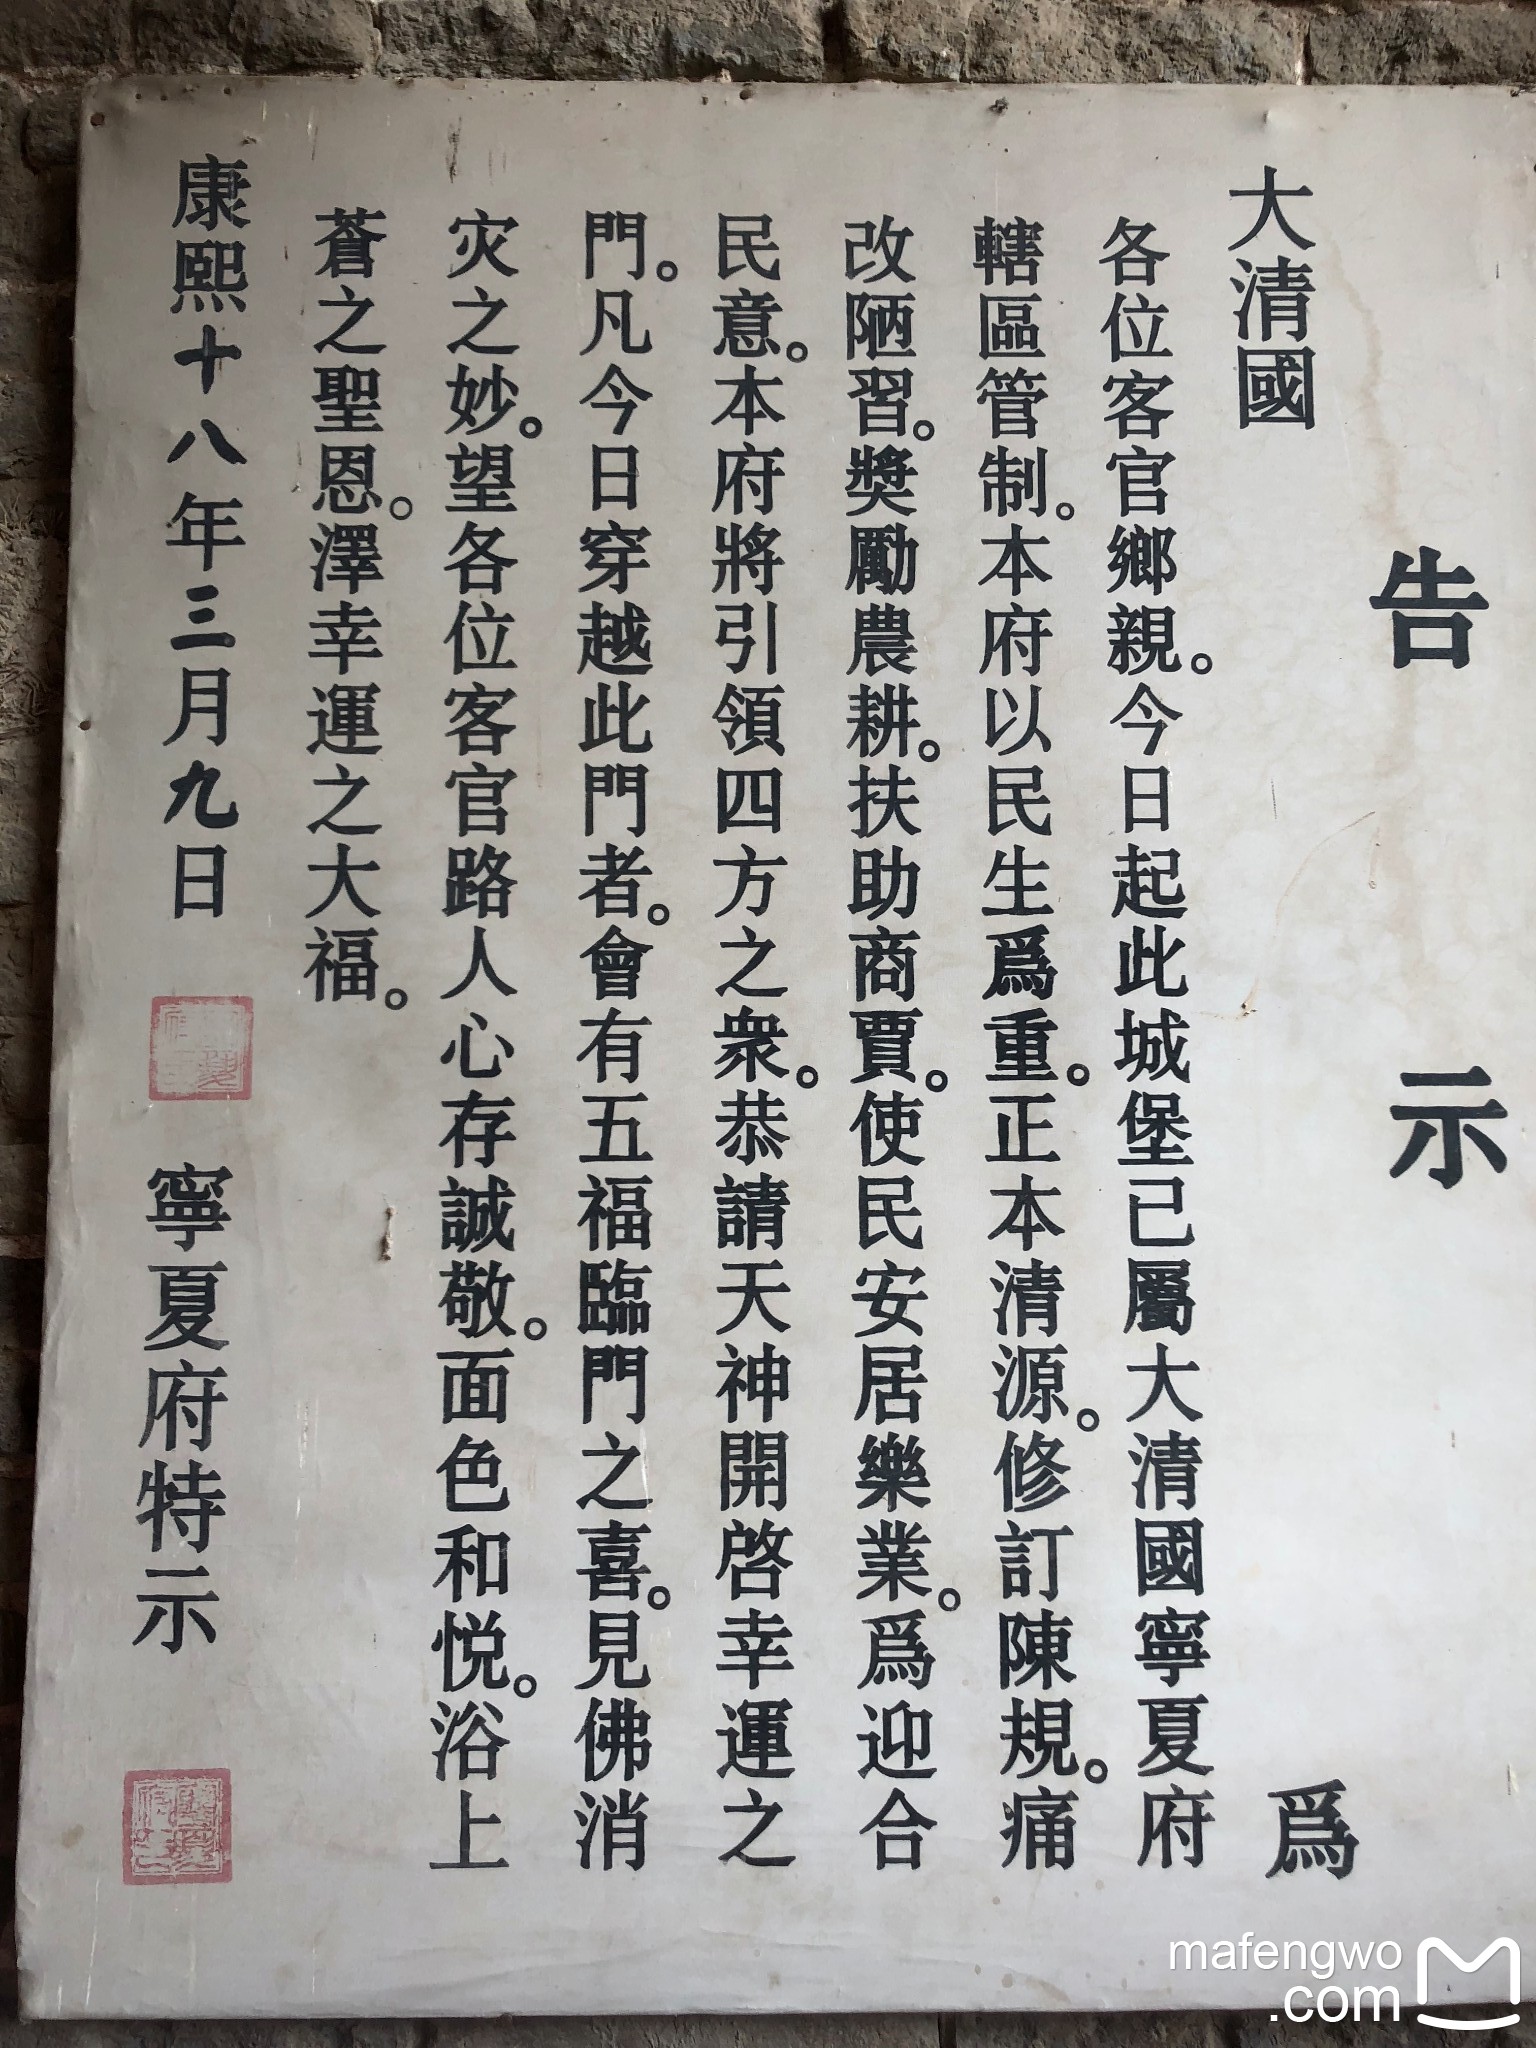 告示
大清國 爲
各位客官鄉親。今日起此城堡已屬大清國寧夏府
轄區管制。本府以民生爲重。正本清源。修訂陳規。痛
改陋習。獎勵農耕。扶助商賈。使民安居樂業。爲迎合
民意。本府將引領四方之衆。恭請天神開啓幸運之
門。凡今日穿越此門者。會有五福臨門之喜。見佛消
灾之妙。望各位客官路人心存誠敬。面色和悦。浴上
蒼之聖恩。澤幸運之大福。
康熙十八年三月九日 寧夏府特示
mafengwo
.com